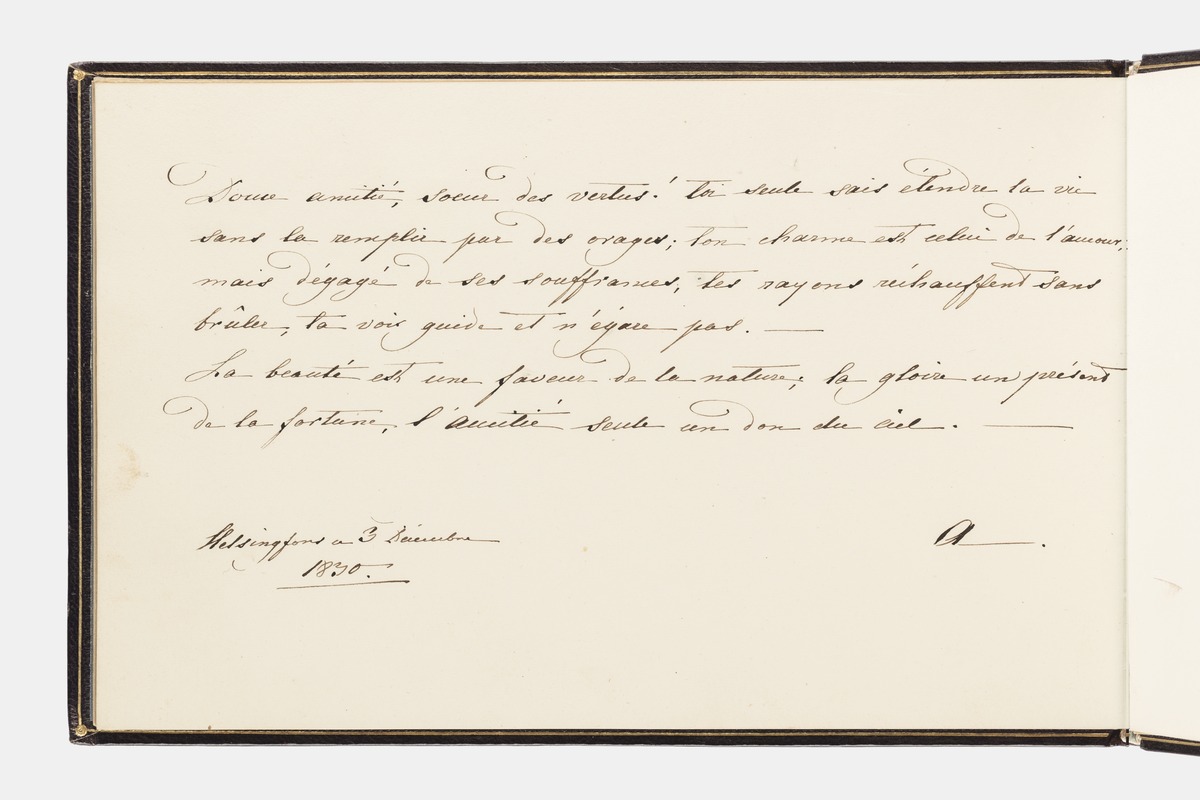 Douce amitié, soeur des vertus! toi seule sais étendre la vie
sans la remplir par des orages; ton charme est celui de l'amour,
mais dégagé de ses souffrances, tes rayons réchauffent sans
brûler, ta voix guide et n'égare pas. —
La beauté est une faveur de la nature; la gloire un présent
de la fortune, l'amitié seule un don du ciel. —
Helsingfors a 3 Décembre
1830.
A—.